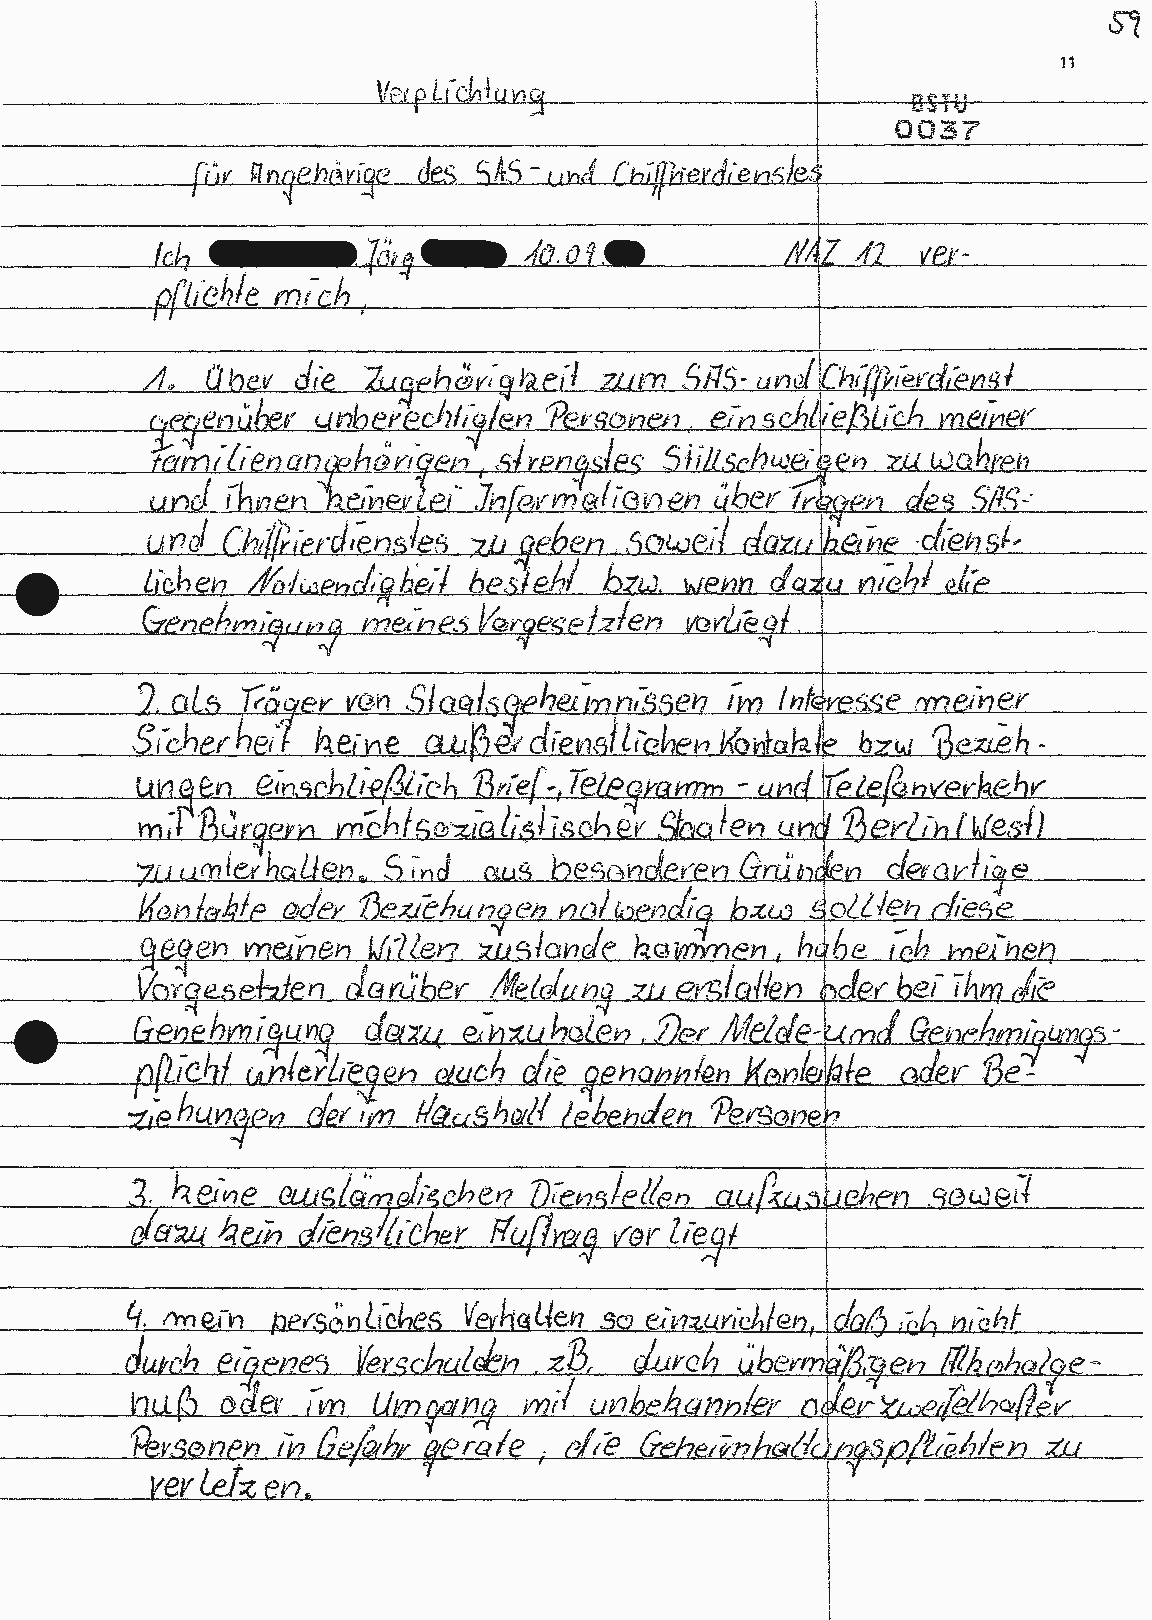 59
11
Verplichtung
BSTU
0037
für Angehörige des SAS- und Chiffrierdienstes
Ich Jörg 10.09. NAZ 12 ver-
pflichte mich,
1. Über die Zugehörigkeit zum SAS- und Chiffrierdienst
gegenüber unberechtigten Personen, einschließlich meiner
Familienangehörigen, strengstes Stillschweigen zu wahren
und ihnen keinerlei Informationen über Fragen des SAS-
und Chiffrierdienstes zu geben, soweit dazu keine dienst-
lichen Notwendigkeit besteht bzw. wenn dazu nicht die
Genehmigung meines Vorgesetzten vorliegt.
2. als Träger von Staatsgeheimnissen im Interesse meiner
Sicherheit keine außerdienstlichen Kontakte bzw Bezieh-
ungen einschließlich Brief-, Telegramm- und Telefonverkehr
mit Bürgern nichtsozialistischer Staaten und Berlin (West)
zu unterhalten. Sind aus besonderen Gründen derartige
Kontakte oder Beziehungen notwendig bzw sollten diese
gegen meinen Willen zustande kommen, habe ich meinen
Vorgesetzten darüber Meldung zu erstatten oder bei ihm die
Genehmigung dazu einzuholen. Der Melde- und Genehmigungs-
pflicht unterliegen auch die genannten Kontakte oder Be-
ziehungen der im Haushalt lebenden Personen
3. keine ausländischen Dienstellen aufzusuchen soweit
dazu kein dienstlicher Auftrag vorliegt
4. mein persönliches Verhalten so einzurichten, daß ich nicht
durch eigenes Verschulden, zB. durch übermäßigen Alkoholge-
nuß oder im Umgang mit unbekannter oder zweifelhafter
Personen in Gefahr gerate, die Geheimhaltungspflichten zu
verletzen.